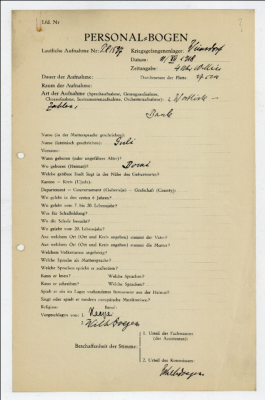 Lfd. Nr
PERSONAL-BOGEN
Lautliche Aufnahme Nr. P.K. Kriegsgefangenenlager:
Datum:
Zeitangabe:
Dauer der Aufnahme: Durchmesser der Platte:
Raum der Aufnahme:
Art der Aufnahme (Sprechaufnahme, Gesangsaufnahme,
Choraufnahme, Instrumentenaufnahme, Orchesteraufnahme):
Zahlen,
Name (in der Muttersprache geschrieben):
Name (lateinisch geschrieben): Suli
Vorname:
Wann geboren (oder ungefähres Alter)?
Wo geboren (Heimat)?
Welche größere Stadt liegt in der Nähe des Geburtsortes?
Kanton — Kreis (Ujedz):
Department — Gouvernement (Gubernija) — Grafschaft (County):
Wo gelebt in den ersten 6 Jahren?
Wo gelebt vom 7. bis 20. Lebensjahr?
Was für Schulbildung?
Wo die Schule besucht?
Wo gelebt vom 20. Lebensjahr?
Aus welchem Ort (Ort und Kreis angeben) stammt der Vater?
Aus welchem Ort (Ort und Kreis angeben) stammt die Mutter?
Welchem Volksstamm angehörig?
Welche Sprache als Muttersprache?
Welche Sprachen spricht er außerdem?
Kann er lesen? Welche Sprachen?
Kann er schreiben? Welche Sprachen?
Spielt er ein im Lager vorhandenes Instrument aus der Heimat?
Singt oder spielt er modern europäische Musikweisen?
Religion: Beruf:
Vorgeschlagen von: 1.
2. Wilh Doegen
Beschaffenheit der Stimme:
1. Urteil des Fachmannes
(des Assistenten):
2. Urteil des Kommissars:
Wilh Doegen